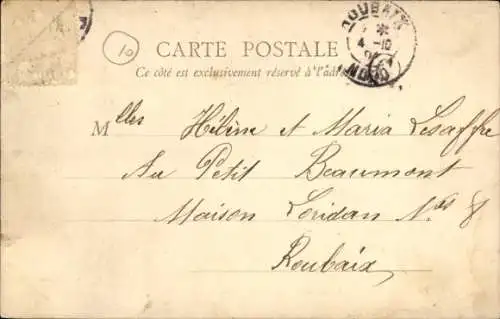 10
CARTE POSTALE
ROUBAIX
4 -10
NORD
Ce côté est exclusivement réservé à l'adre
Mlles Hélène et Maria Lesaffre
Au Petit Beaumont
Maison Loridan Nos 8
Roubaix